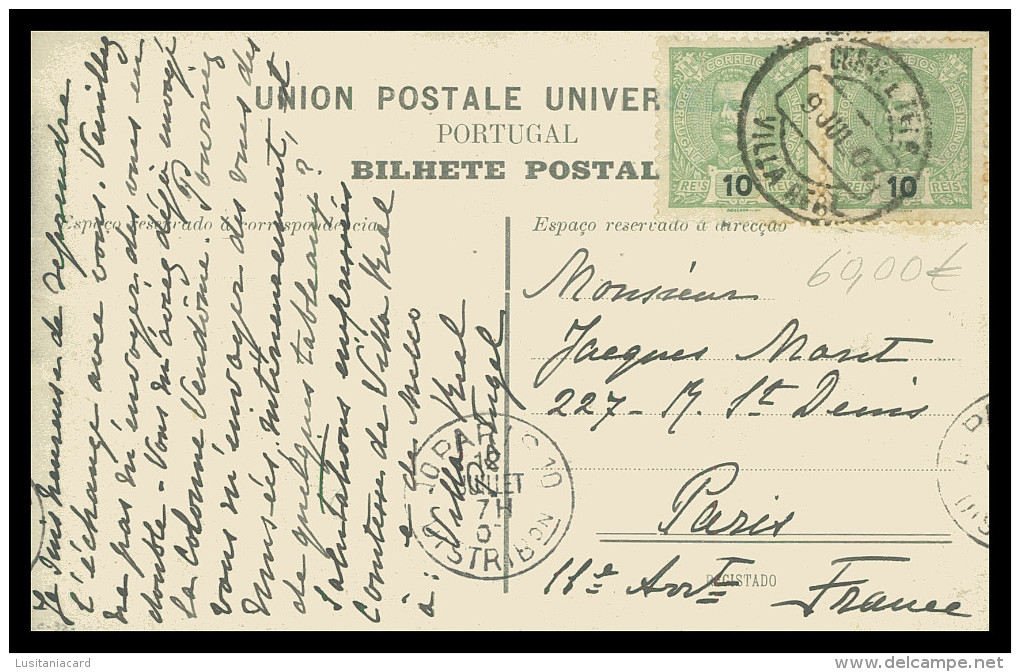 UNION POSTALE UNIVER
PORTUGAL
BILHETE POSTAL
Espaço reservado á correspondencia
Espaço reservado á direcção
CORREIOS
PORTUGAL
REIS 10
CORREIOS
10 REIS
9 JUL 07
VILLA REAL
60,00€
Monsieur
Jacques Moret
227 - R. St Denis
Paris
11e Arrt
France
REGISTADO
Je suis heureuse de reprendre
l'échange avec vous. Veuillez
ne pas m'envoyer des vues en
double - Vous m'aviez déjà envoyé
la colonne Vendôme. Pourriez
vous m'envoyer des vues de
musées, intérieurement, et
de quelques tableaux?
Salutations empressées
Comtesse de Villa Real
à: e de Mello
Villa Real
Portugal
PARIS 10
18
JUILLET
7H
07
DISTRIBON
Lusitaniacard
delcampe.net